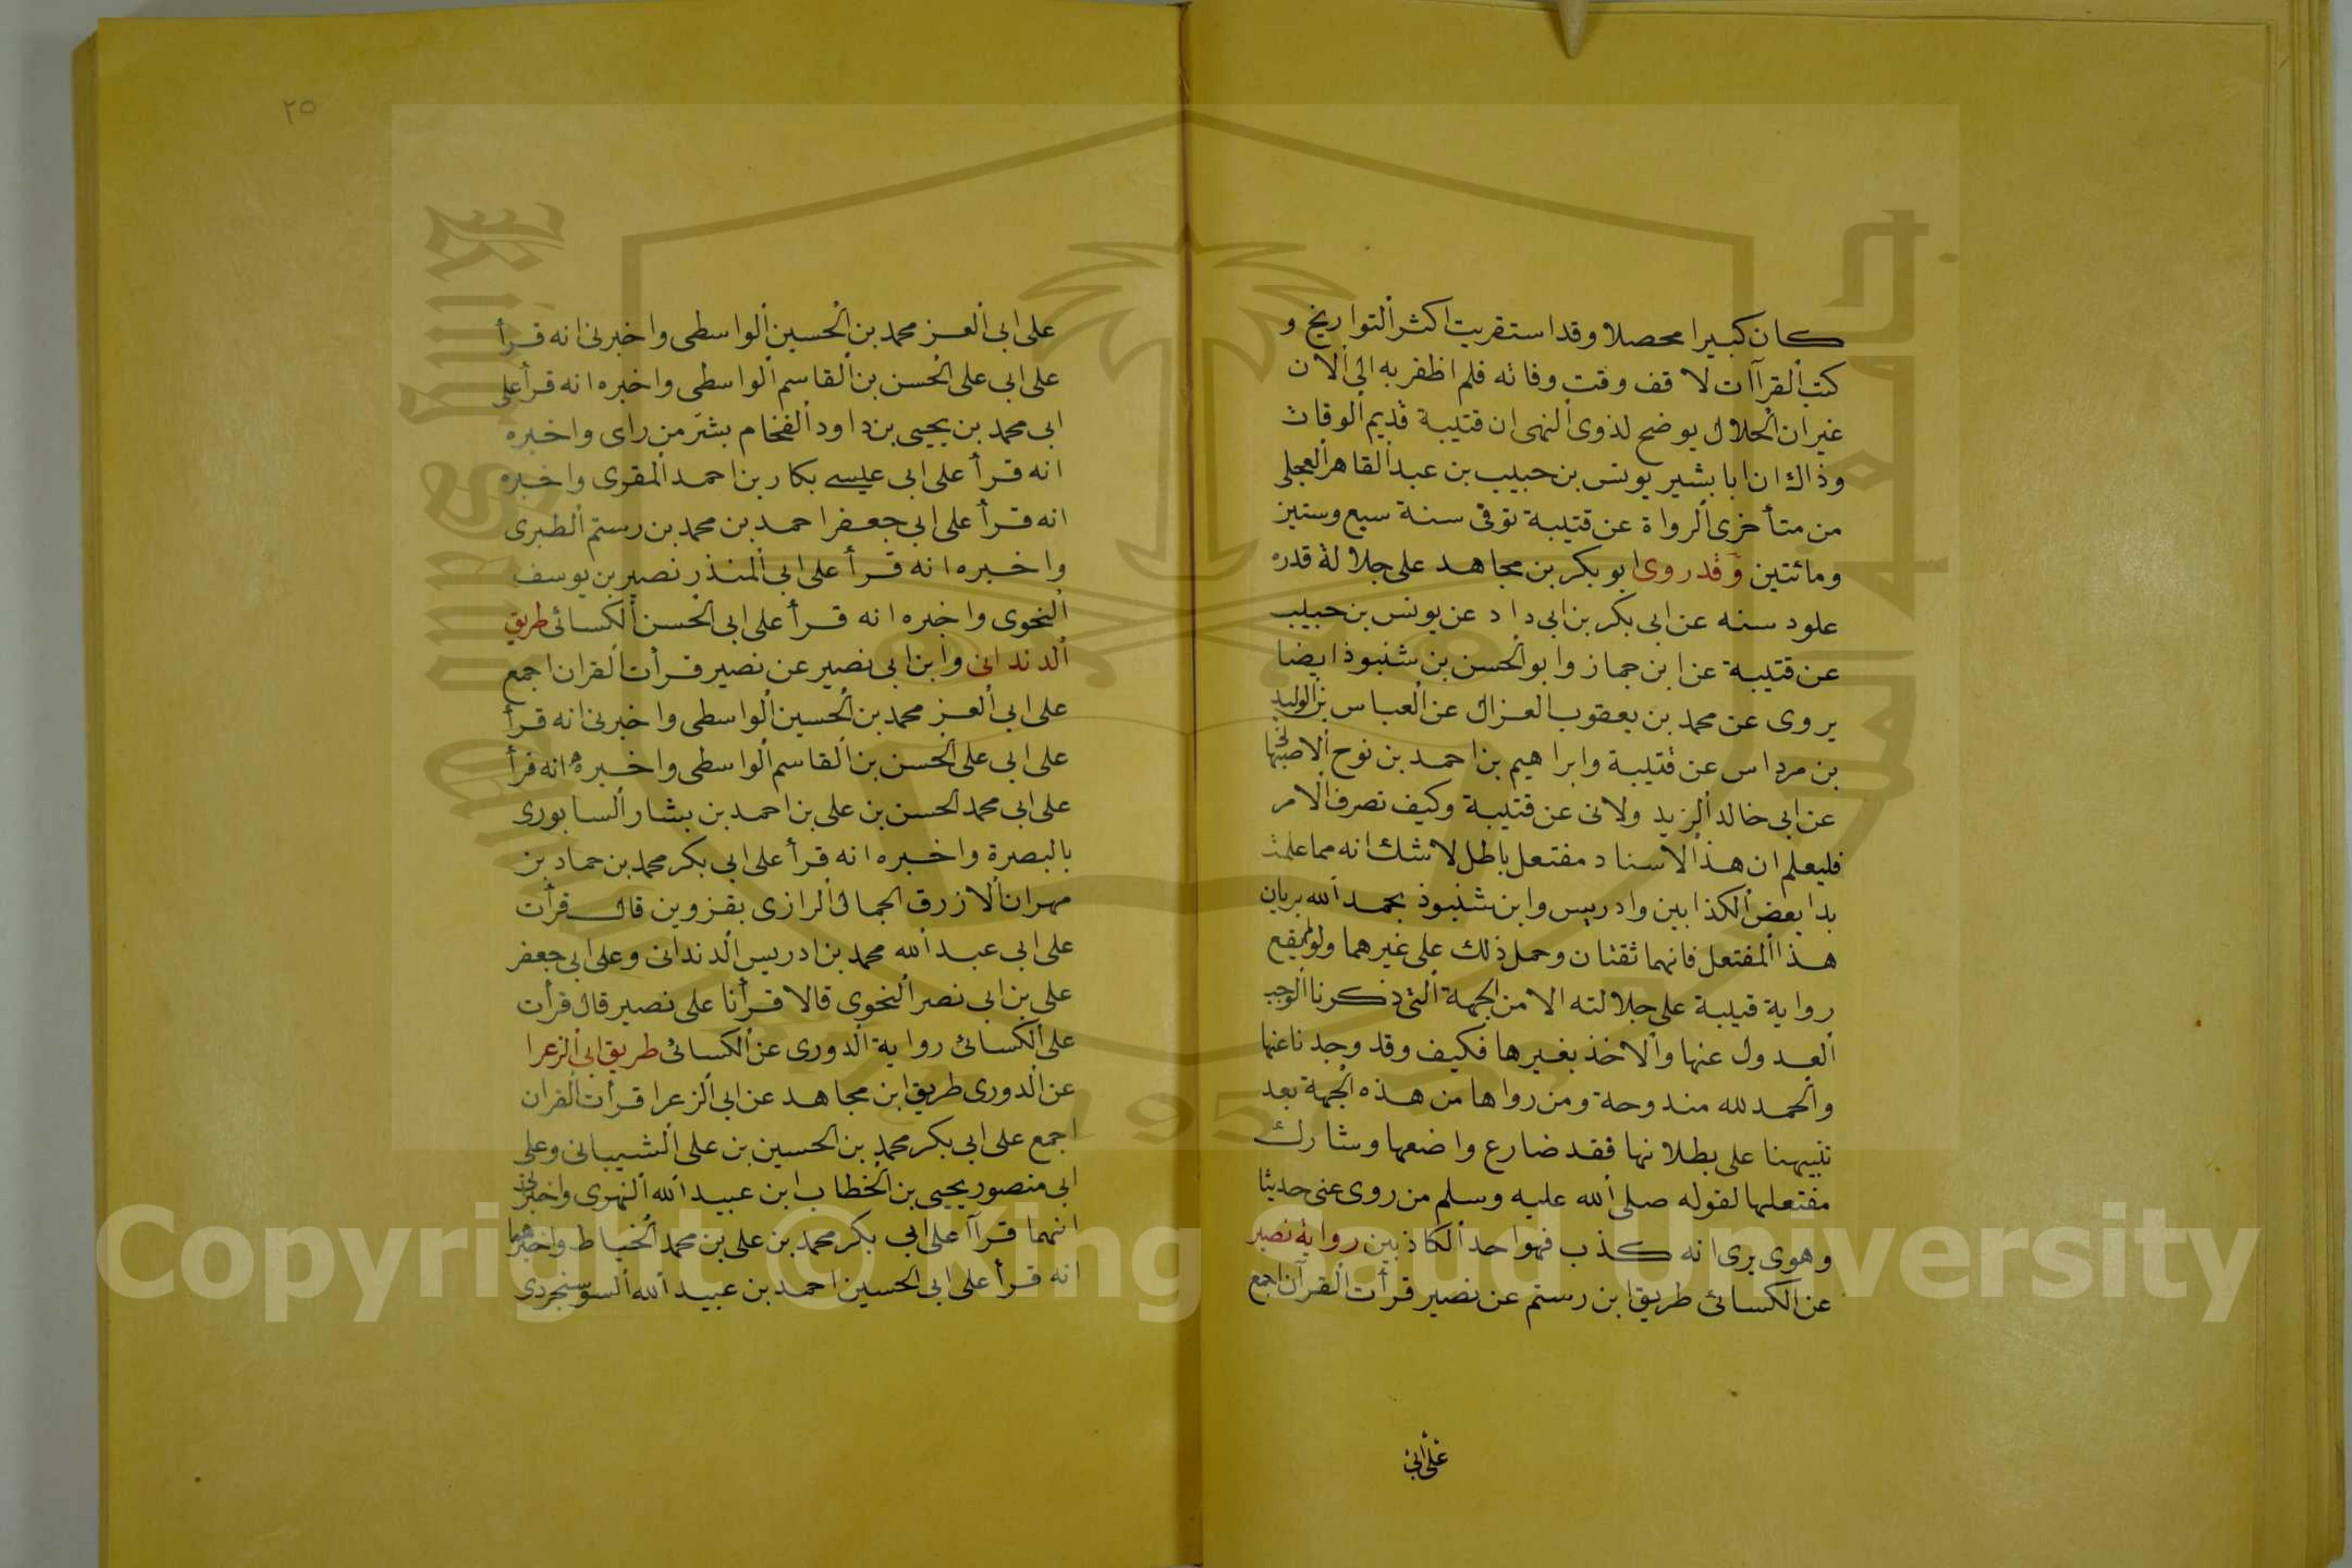 كان كبيرا محصلا وقد استقريت اكثر التواريخ و
كتب القراآت لا قف وقت وفاته فلم اظفر به الى الان
غير ان الحلال يوضح لذوى النهى ان قتيبة قديم الوفاة
وذاك ان ابا بشير يونس بن حبيب بن عبد القاهر العجلى
من متأخرى الرواة عن قتيبة توفى سنة سبع وستين
ومائتين وقد روى ابو بكر بن مجاهد على جلالة قدره
علود سنه عن ابى بكر بن ابى داد عن يونس بن حبيب
عن قتيبة عن ابن جماز وابو الحسن بن شنبوذ ايضا
يروى عن محمد بن يعقوب الغزال عن العباس بن الوليد
بن مرداس عن قتيبة وابراهيم بن احمد بن نوح الاصبهانى
عن ابى خالد الزيد ولانى عن قتيبة وكيف تصرف الامر
فليعلم ان هذا الاسناد مفتعل باطل لا شك انه مما علمت
بدا بعض الكذابين وادريس وابن شنبوذ بحمد الله بريان
هذا المفتعل فانهما ثقتان وحمل ذلك على غيرهما ولو لم يقع
رواية قتيبة على جلالته الا من الجهة التى ذكرنا الوجب
العدول عنها والاخذ بغيرها فكيف وقد وجدنا عنها
والحمد لله مندوحة ومن رواها من هذه الجهة بعد
تنبيهنا على بطلانها فقد ضارع واضعها وشارك
مفتعلها لقوله صلى الله عليه وسلم من روى عنى حديثا
وهوى يرى انه كذب فهو احد الكاذبين رواية نصير
عن الكسائى طريق ابن رستم عن نصير قرأت القرآن اجمع
على ابى
٢٥
على ابى العز محمد بن الحسين الواسطى واخبرنى انه قرأ
على ابى على الحسن بن القاسم الواسطى واخبره انه قرأ على
ابى محمد بن يحيى بن داود الفخام بشر من راى واخبره
انه قرأ على ابى عيسى بكار بن احمد المقرى واخبره
انه قرأ على ابى جعفر احمد بن محمد بن رستم الطبرى
واخبره انه قرأ على ابى المنذر نصير بن يوسف
النحوى واخبره انه قرأ على ابى الحسن الكسائى طريق
الدندانى وابن ابى نصير عن نصير قرأت القران اجمع
على ابى العز محمد بن الحسين الواسطى واخبرنى انه قرأ
على ابى على الحسن بن القاسم الواسطى واخبره انه قرأ
على ابى محمد الحسن بن على بن احمد بن بشار السابورى
بالبصرة واخبره انه قرأ على ابى بكر محمد بن حماد بن
مهران الازرق الجمال الرازى بقزوين قال قرأت
على ابى عبد الله محمد بن ادريس الدندانى وعلى ابى جعفر
على بن ابى نصر النحوى قالا قرأنا على نصير قال قرأت
على الكسائى رواية الدورى عن الكسائى طريق ابى الزعرا
عن الدورى طريق ابن مجاهد عن ابى الزعرا قرأت القران
اجمع على ابى بكر محمد بن الحسين بن على الشيبانى وعلى
ابى منصور يحيى بن الخطاب ابن عبيد الله النهرى واخبرنى
انهما قرآ على ابى بكر محمد بن على بن محمد الخياط واخبرهما
انه قرأ على ابى الحسين احمد بن عبيد الله السوسنجردى
Copyright © King Saud University